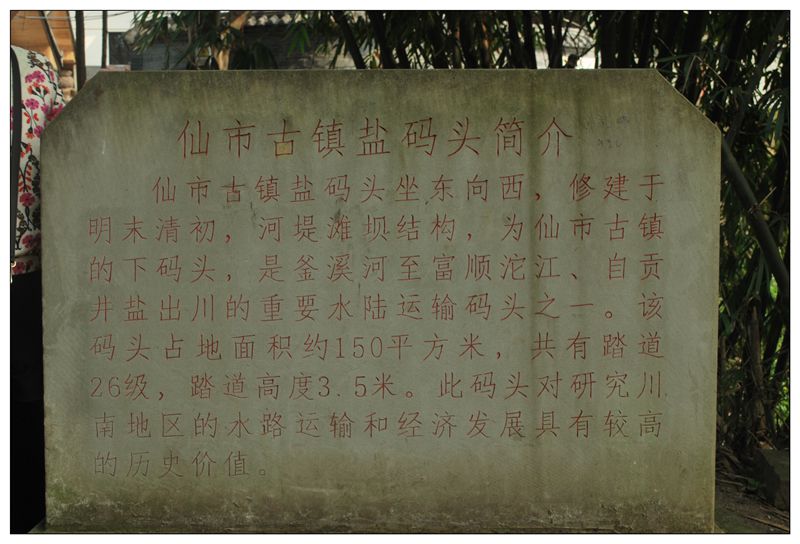 仙市古镇盐码头简介
仙市古镇盐码头坐东向西，修建于
明末清初，河堤滩坝结构，为仙市古镇
的下码头，是釜溪河至富顺沱江、自贡
井盐出川的重要水陆运输码头之一。该
码头占地面积约150平方米，共有踏道
26级，踏道高度3.5米。此码头对研究川
南地区的水路运输和经济发展具有较高
的历史价值。